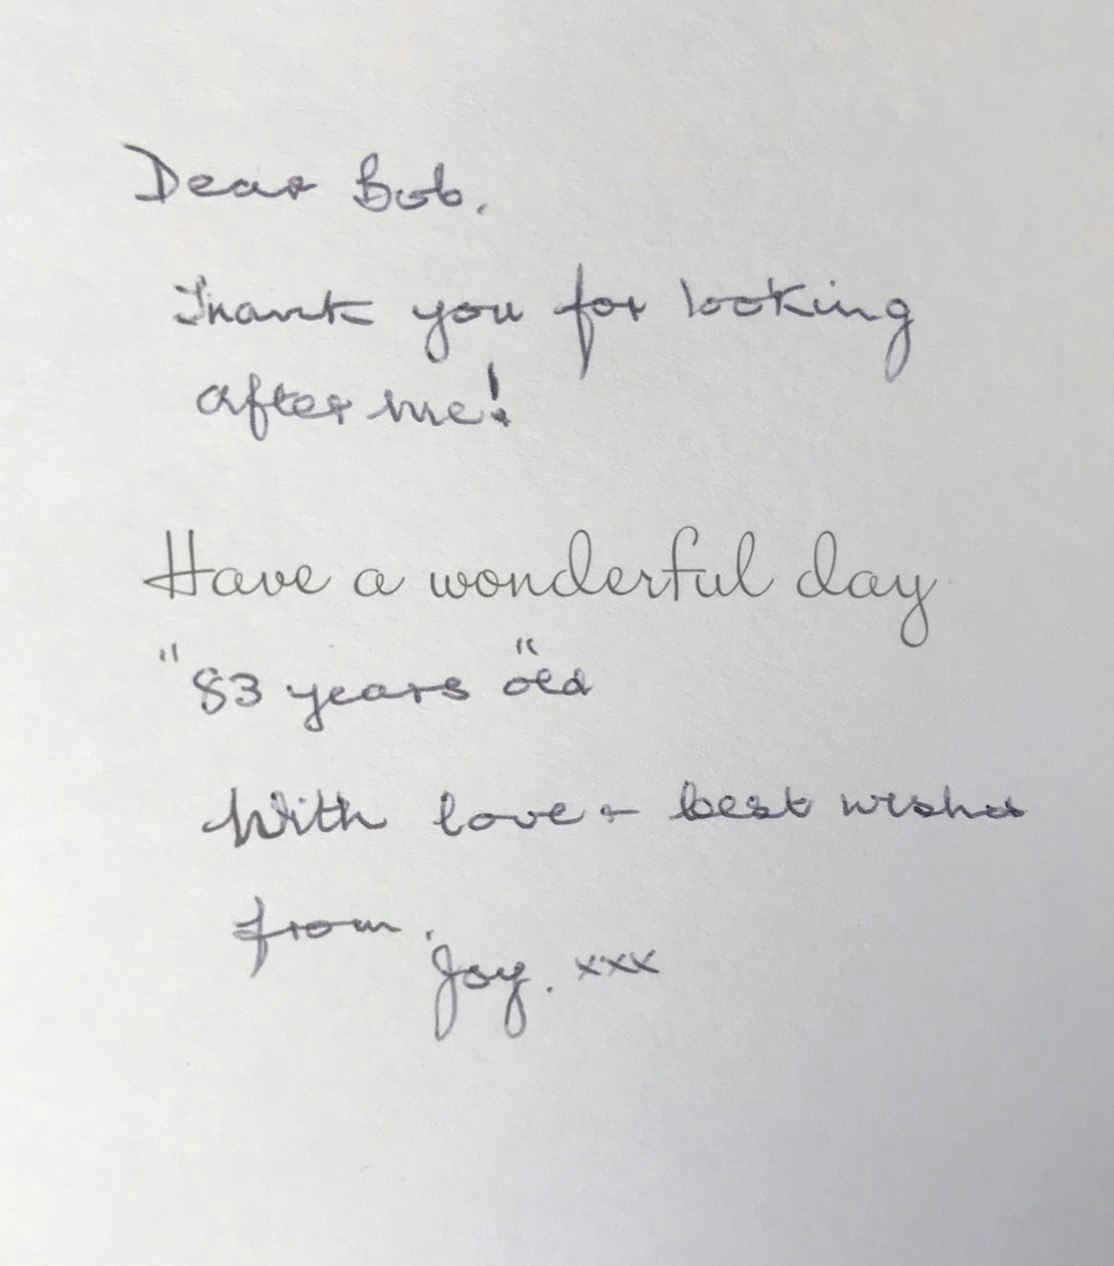 Dear Bob.
Thank you for looking
after me!
Have a wonderful day
"83 years "old
With love + best wishes
from.
Joy. xxx